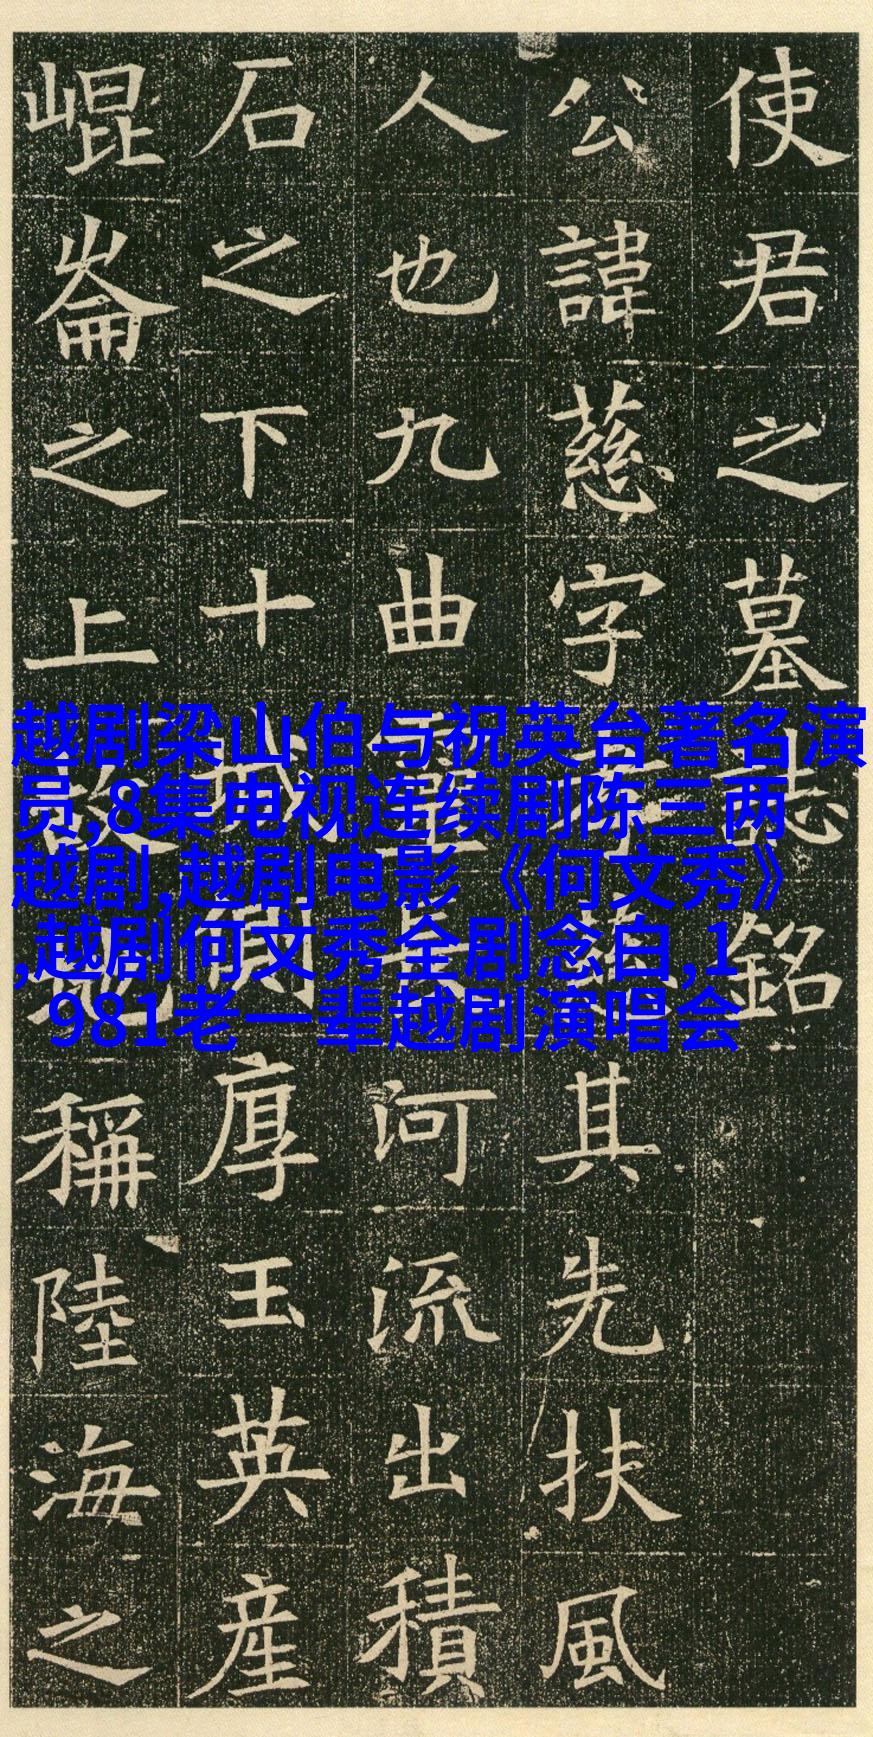 使君之墓志銘
公諱慈字其先扶風
人也九曲河流出積
石之下十厚玉英産
崐崙之上稱陸海之
越剧梁山伯与祝英台著名演
员,8集电视连续剧陈三两
越剧,越剧电影《何文秀》
,越剧何文秀全剧念白,1
981老一辈越剧演唱会